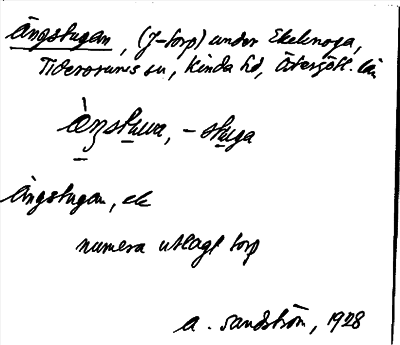 Ängstugan, (f-torp) under Ekeknoga,
Tidersrums sn, Kinda hd, Östergötl. län
Ä̀ŋstuwa, -stuga
Ängstugan, ek
numera utlagt torp
A. Sandström, 1928